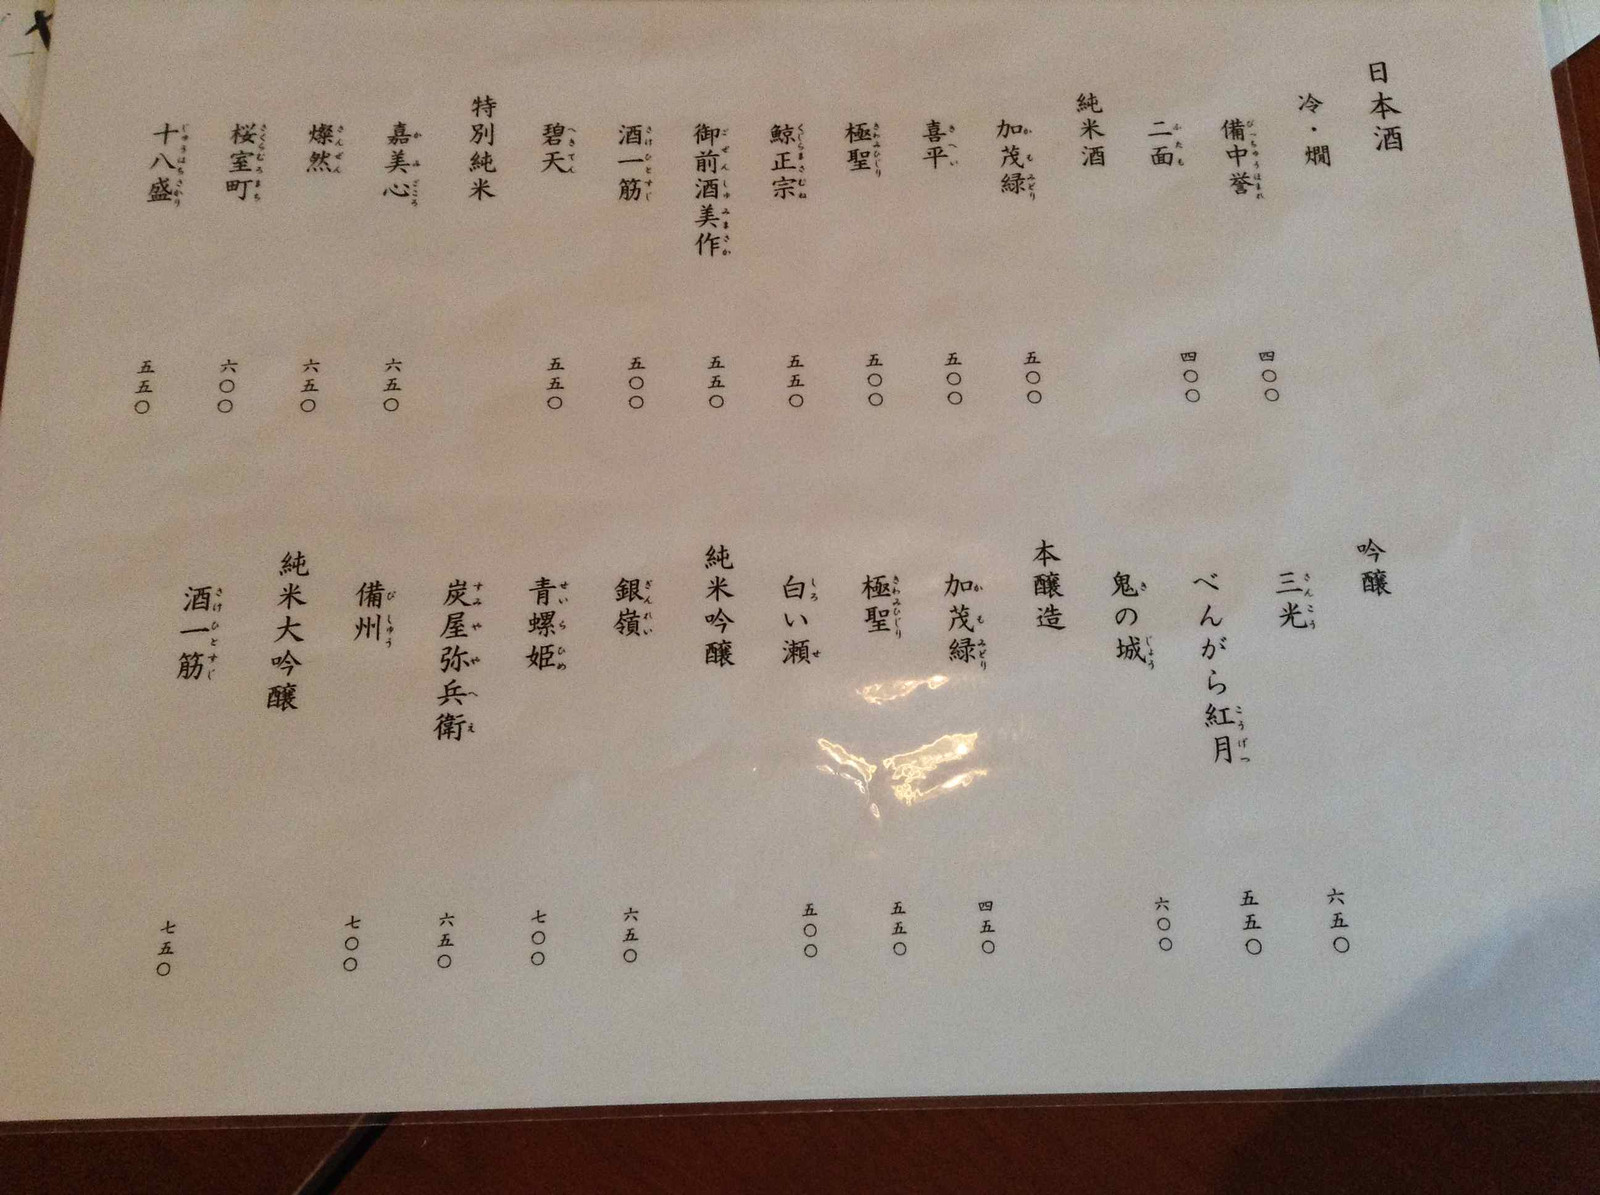 日本酒
冷・燗
備中誉 四〇〇
二面 四〇〇
純米酒
加茂緑 五〇〇
喜平 五〇〇
極聖 五〇〇
鯨正宗 五五〇
御前酒美作 五五〇
酒一筋 五〇〇
碧天 五五〇
特別純米
嘉美心 六五〇
燦然 六五〇
桜室町 六〇〇
十八盛 五五〇
吟醸
三光 六五〇
べんがら紅月 五五〇
鬼の城 六〇〇
本醸造
加茂緑 四五〇
極聖 五五〇
白い瀬 五〇〇
純米吟醸
銀嶺 六五〇
青螺姫 七〇〇
炭屋弥兵衛 六五〇
備州 七〇〇
純米大吟醸
酒一筋 七五〇